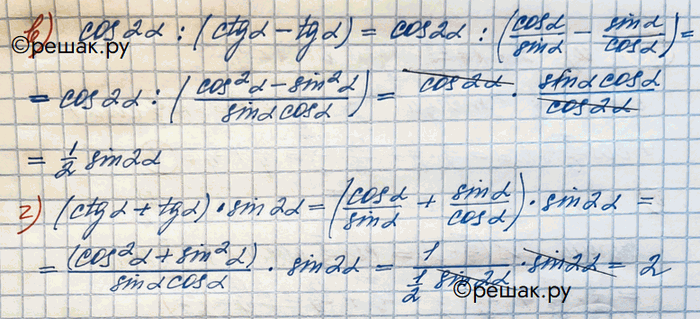 в) cos2α : (ctgα − tgα) = cos2α : (cosα/sinα − sinα/cosα) =
©решак.ру
= cos2α : ((cos²α − sin²α)/(sinα cosα)) = cos2α · (sinα cosα)/(cos2α)
= 1/2 sin2α
г) (ctgα + tgα) · sin2α = (cosα/sinα + sinα/cosα) · sin2α =
= (cos²α + sin²α)/(sinα cosα) · sin2α = 1/(1/2 sin2α) · sin2α = 2
©решак.ру